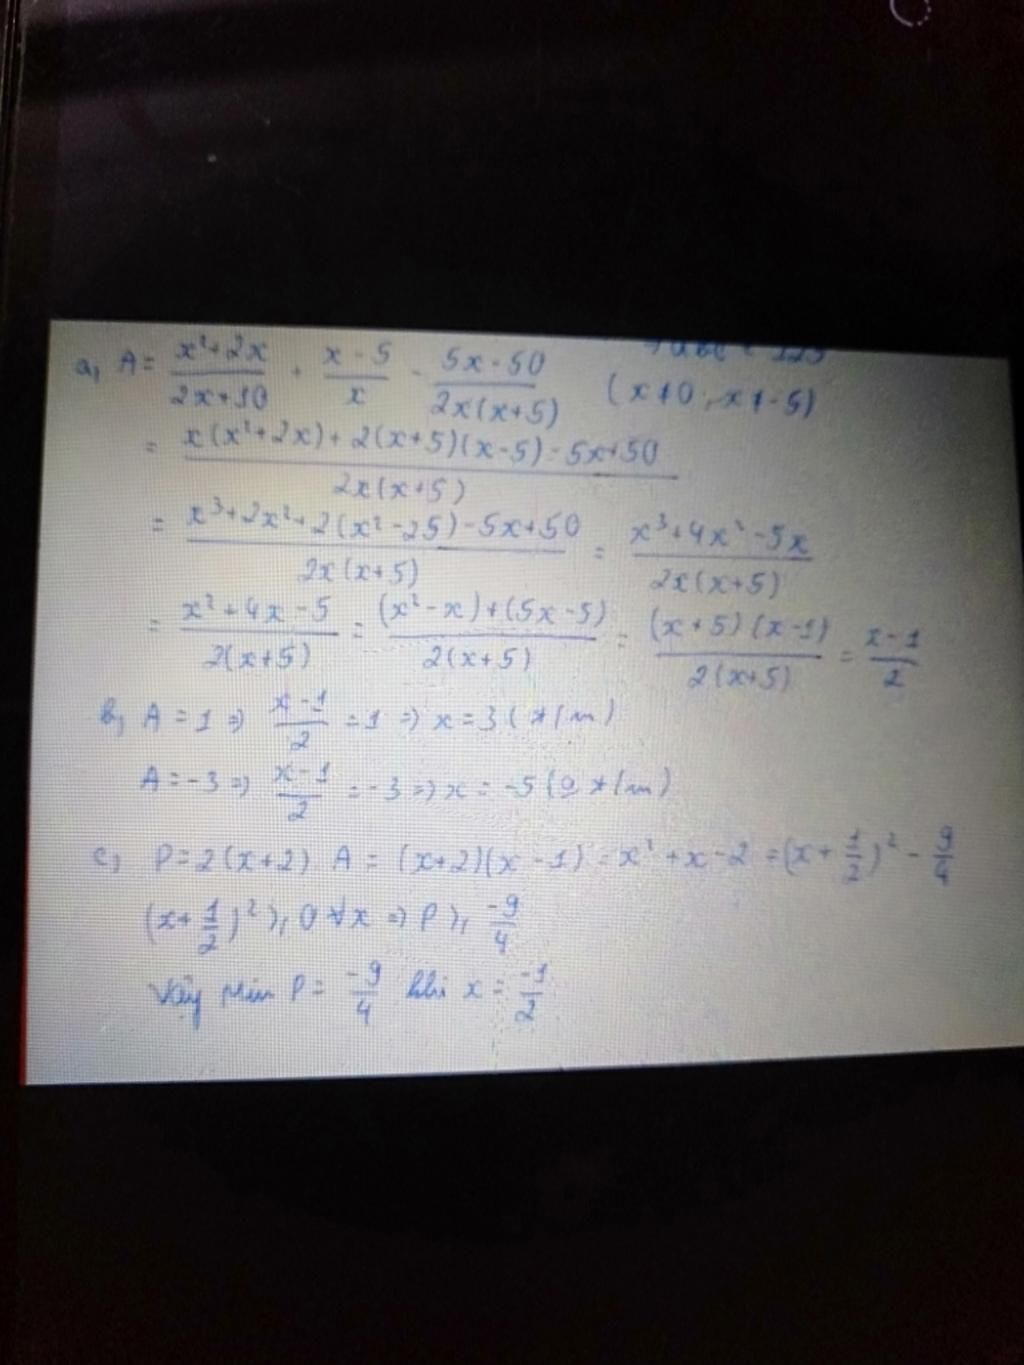 a, A = (x²+2x)/(2x+10) + (x-5)/x - (5x-50)/(2x(x+5)) (x≠0, x≠-5)
= (x(x²+2x)+2(x+5)(x-5)-5x+50)/(2x(x+5))
= (x³+2x²+2(x²-25)-5x+50)/(2x(x+5)) = (x³+4x²-5x)/(2x(x+5))
= (x²+4x-5)/(2(x+5)) = ((x²-x)+(5x-5))/(2(x+5)) = ((x+5)(x-1))/(2(x+5)) = (x-1)/2
b, A = 1 => (x-1)/2 = 1 => x = 3 (t/m)
A = -3 => (x-1)/2 = -3 => x = -5 (0 t/m)
c, P = 2(x+2) A = (x+2)(x-1) = x²+x-2 = (x+1/2)² - 9/4
(x+1/2)² ≥ 0 ∀x => P ≥ -9/4
Vậy Min P = -9/4 khi x = -1/2